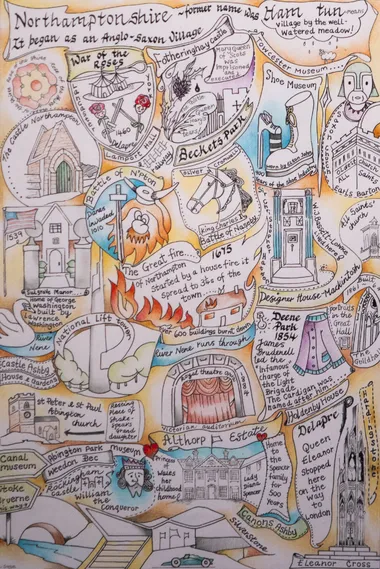 Northamptonshire ~former name was Ham tun~means
village by the well-
watered meadow!
It began as an Anglo-Saxon Village
War of the
Roses
York
1460
Delapre
Fotheringhay Castle
Mary Queen
of Scots
was
imprisoned
and
executed
Towcester Museum....
Shoe Museum
The Castle Northampton
Lamport Hall
Becket's Park
All
Saints
Earls Barton
Battle of N'pton
Danes
invaded
1010
Oliver Cromwell
King Charles I
Battle of Naseby
All Saints'
church
W.J. Bassett-Lowke
lived here
Designer House Mackintosh
1539
Sulgrave Manor
Home of George
Washington
built by
Lawrence
Washington
The Great fire....
1675
of Northampton
started by a house fire it
spread to 3/4 of the
town
over 600 buildings burnt down
River
Nene
River Nene runs through
National Lift Tower
Castle Ashby
House & Gardens
Royal theatre
1884
Victorian Auditorium
Deene
Park
1854
James
Brudenell
led the
Infamous
charge
of the
Light
Brigade
The Cardigan was
named after him
Holdenby House
portraits
in the
Great
Hall
Built
The
Guildhall
St Peter & St Paul
Abington
church
Resting
Place of
Shake-
speare's
Grand-
daughter
Canal
museum
Stoke
Bruerne
Abington Park
museum
Weedon Bec
Rockingham
Castle
William
the
Conqueror
Althorp Estate
Princess
of
Wales
her
childhood
home
Lady
Diana
Spencer
Home
to the
Spencer
family
for
500
Years
Canons Ashby
Silverstone
Delapre
Queen
Eleanor
stopped
here
on
the
way
to
London
Eleanor Cross